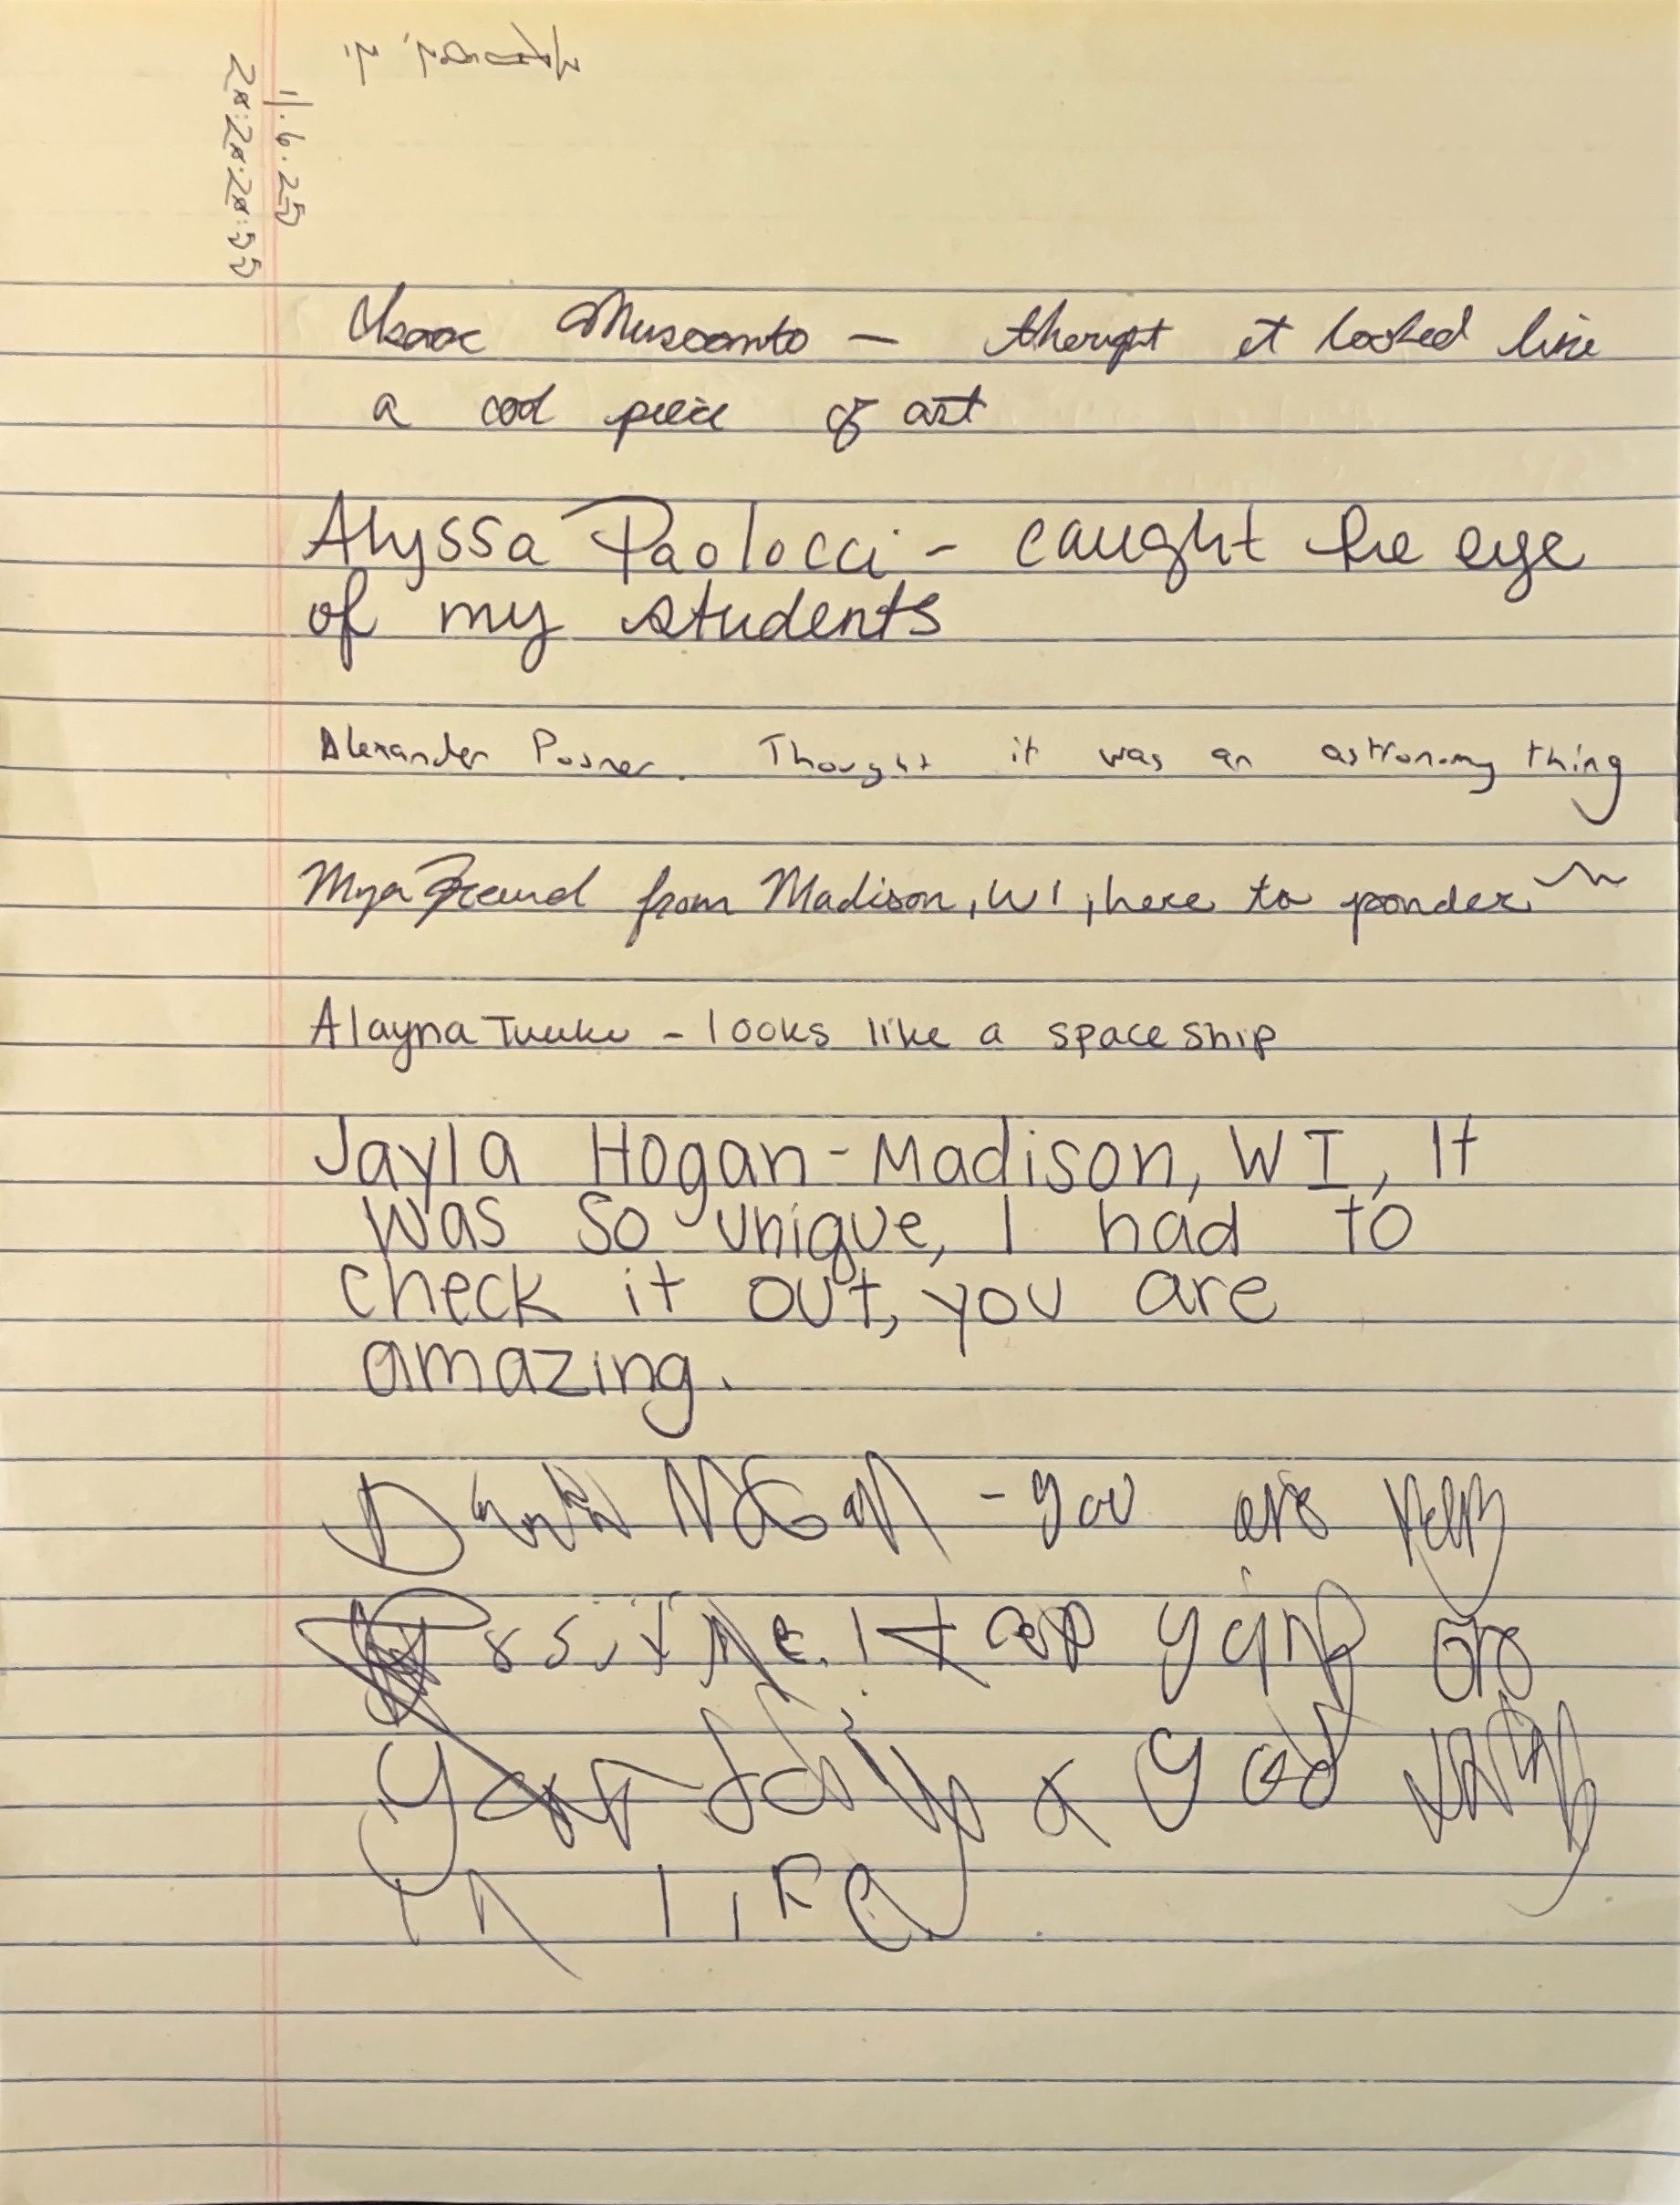 11.6.25
Isaac Muscanto — thought it looked like
a cool piece of art
Alyssa Paolocci - caught the eye
of my students
Alexander Posner. Thought it was an astronomy thing
Mya Freund from Madison, WI, here to ponder ~
Alayna - looks like a spaceship
Jayla Hogan - Madison, WI, It
was so unique, I had to
check it out, you are
amazing.
- you are very
Positive. Keep going
a good
in life